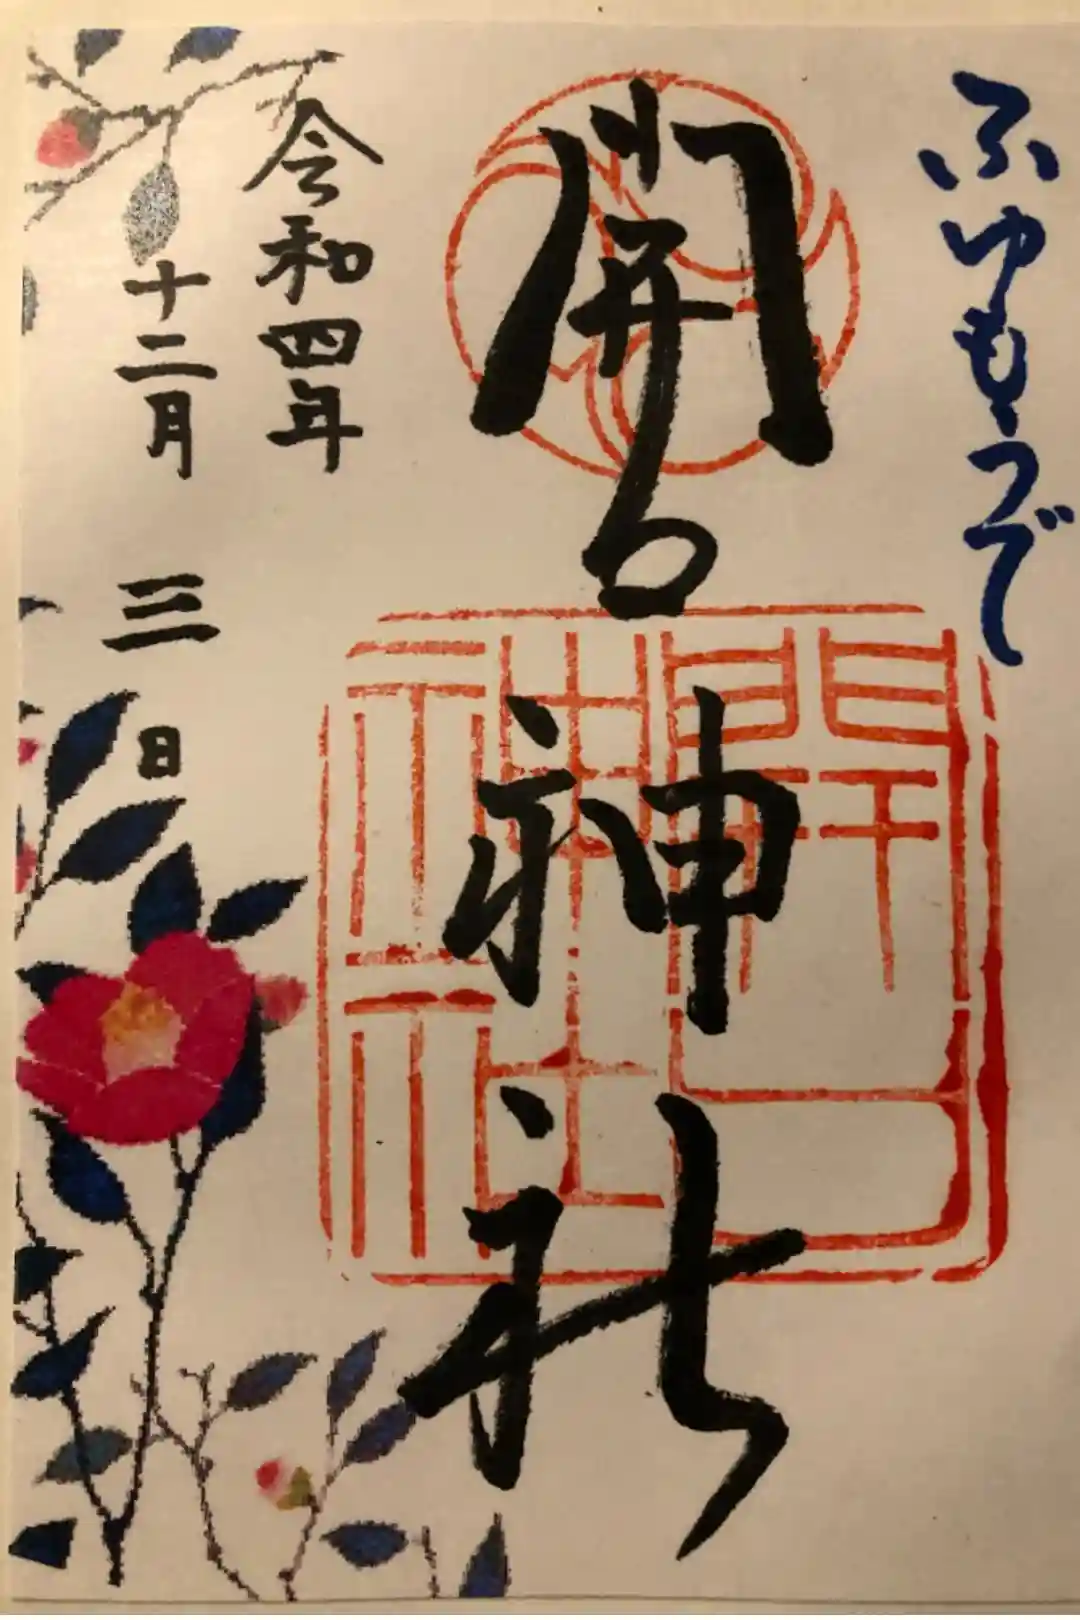 ふゆもうで
開口神社
開口
神社
令和四年
十二月三日